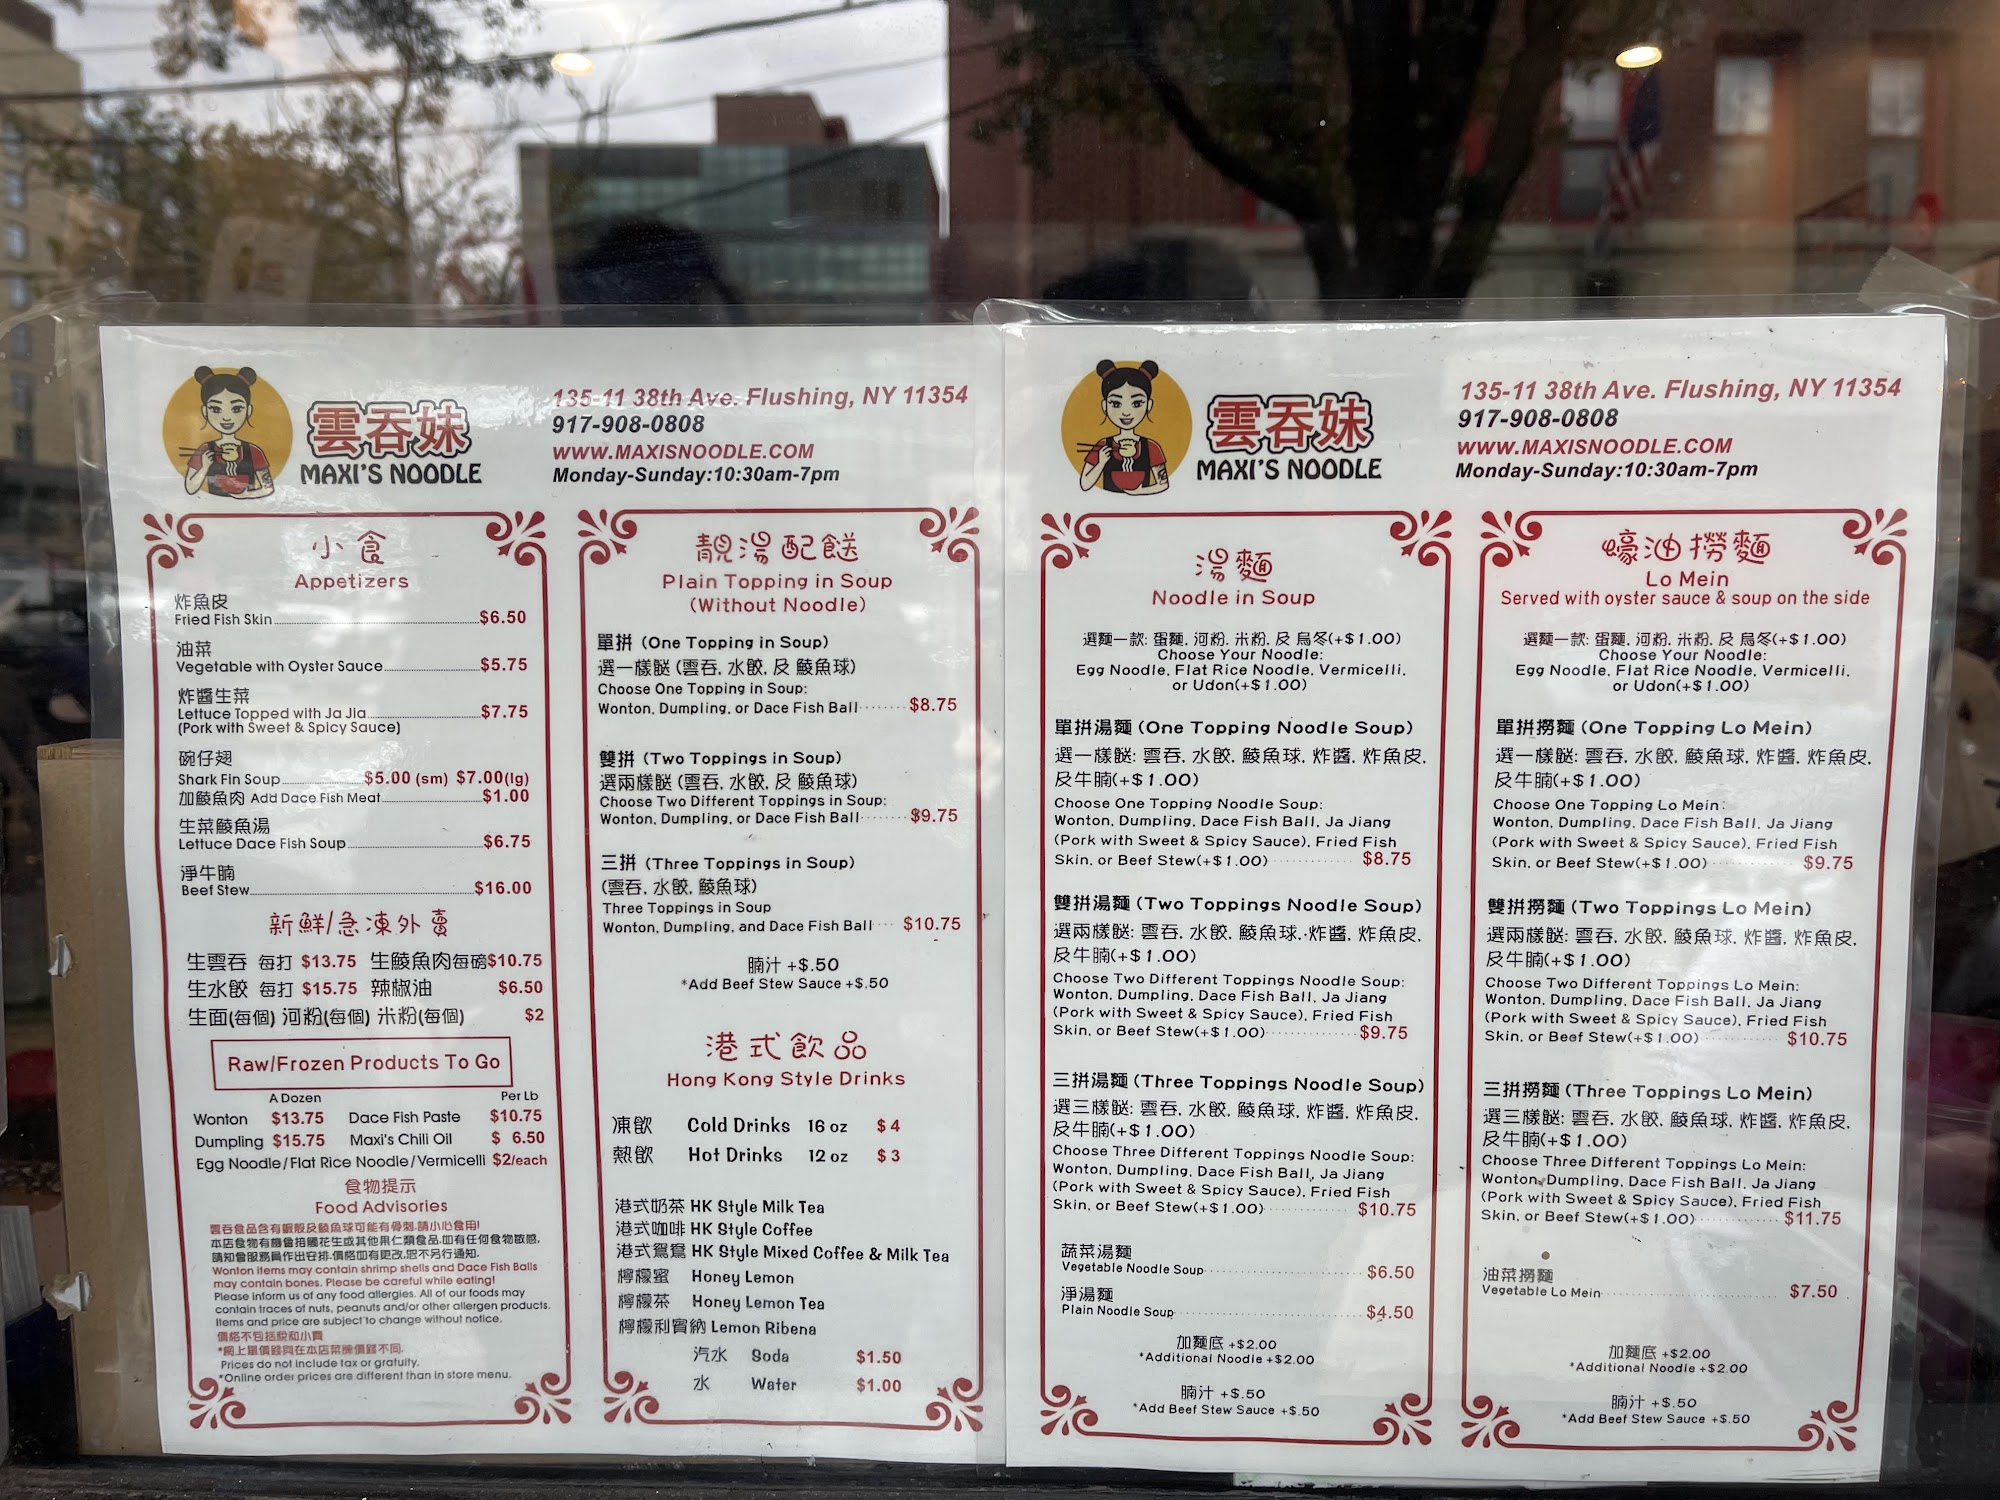 雲吞妹
MAXI'S NOODLE
135-11 38th Ave. Flushing, NY 11354
917-908-0808
WWW.MAXISNOODLE.COM
Monday-Sunday:10:30am-7pm
小食
Appetizers
炸魚皮
Fried Fish Skin $6.50
油菜
Vegetable with Oyster Sauce $5.75
炸醬生菜
Lettuce Topped with Ja Jia $7.75
(Pork with Sweet & Spicy Sauce)
碗仔翅
Shark Fin Soup $5.00 (sm) $7.00(lg)
加鯪魚肉 Add Dace Fish Meat $1.00
生菜鯪魚湯
Lettuce Dace Fish Soup $6.75
淨牛腩
Beef Stew $16.00
新鮮/急凍外賣
生雲吞 每打 $13.75 生鯪魚肉每磅$10.75
生水餃 每打 $15.75 辣椒油 $6.50
生面(每個) 河粉(每個) 米粉(每個) $2
Raw/Frozen Products To Go
A Dozen Per Lb
Wonton $13.75 Dace Fish Paste $10.75
Dumpling $15.75 Maxi's Chili Oil $ 6.50
Egg Noodle/Flat Rice Noodle/Vermicelli $2/each
食物提示
Food Advisories
雲吞食品含有蝦殼及鯪魚球可能有骨刺.請小心食用!
本店食物有機會指觸花生或其他果仁類食品.如有任何食物敏感,
請知會服務員作出安排.價格如有更改.恕不另行通知.
Wonton items may contain shrimp shells and Dace Fish Balls
may contain bones. Please be careful while eating!
Please inform us of any food allergies. All of our foods may
contain traces of nuts, peanuts and/or other allergen products.
Items and price are subject to change without notice.
價格不包括稅和小費
*網上單價錢與在本店菜牌價錢不同.
Prices do not include tax or gratuity.
*Online order prices are different than in store menu.
靚湯配餸
Plain Topping in Soup
(Without Noodle)
單拼 (One Topping in Soup)
選一樣餸 (雲吞, 水餃, 及 鯪魚球)
Choose One Topping in Soup:
Wonton, Dumpling, or Dace Fish Ball $8.75
雙拼 (Two Toppings in Soup)
選兩樣餸 (雲吞, 水餃, 及 鯪魚球)
Choose Two Different Toppings in Soup:
Wonton, Dumpling, or Dace Fish Ball $9.75
三拼 (Three Toppings in Soup)
(雲吞, 水餃, 鯪魚球)
Three Toppings in Soup
Wonton, Dumpling, and Dace Fish Ball $10.75
腩汁 +$.50
*Add Beef Stew Sauce +$.50
港式飲品
Hong Kong Style Drinks
凍飲 Cold Drinks 16 oz $4
熱飲 Hot Drinks 12 oz $3
港式奶茶 HK Style Milk Tea
港式咖啡 HK Style Coffee
港式鴛鴦 HK Style Mixed Coffee & Milk Tea
檸檬蜜 Honey Lemon
檸檬茶 Honey Lemon Tea
檸檬利賓納 Lemon Ribena
汽水 Soda $1.50
水 Water $1.00
雲吞妹
MAXI'S NOODLE
135-11 38th Ave. Flushing, NY 11354
917-908-0808
WWW.MAXISNOODLE.COM
Monday-Sunday:10:30am-7pm
湯麵
Noodle in Soup
選麵一款: 蛋麵, 河粉, 米粉, 及 烏冬(+$1.00)
Choose Your Noodle:
Egg Noodle, Flat Rice Noodle, Vermicelli,
or Udon(+$1.00)
單拼湯麵 (One Topping Noodle Soup)
選一樣餸: 雲吞, 水餃, 鯪魚球, 炸醬, 炸魚皮,
及牛腩(+$1.00)
Choose One Topping Noodle Soup:
Wonton, Dumpling, Dace Fish Ball, Ja Jiang
(Pork with Sweet & Spicy Sauce), Fried Fish
Skin, or Beef Stew(+$1.00) $8.75
雙拼湯麵 (Two Toppings Noodle Soup)
選兩樣餸: 雲吞, 水餃, 鯪魚球, 炸醬, 炸魚皮,
及牛腩(+$1.00)
Choose Two Different Toppings Noodle Soup:
Wonton, Dumpling, Dace Fish Ball, Ja Jiang
(Pork with Sweet & Spicy Sauce), Fried Fish
Skin, or Beef Stew(+$1.00) $9.75
三拼湯麵 (Three Toppings Noodle Soup)
選三樣餸: 雲吞, 水餃, 鯪魚球, 炸醬, 炸魚皮,
及牛腩(+$1.00)
Choose Three Different Toppings Noodle Soup:
Wonton, Dumpling, Dace Fish Ball, Ja Jiang
(Pork with Sweet & Spicy Sauce), Fried Fish
Skin, or Beef Stew(+$1.00) $10.75
蔬菜湯麵
Vegetable Noodle Soup $6.50
淨湯麵
Plain Noodle Soup $4.50
加麵底 +$2.00
*Additional Noodle +$2.00
腩汁 +$.50
*Add Beef Stew Sauce +$.50
蠔油撈麵
Lo Mein
Served with oyster sauce & soup on the side
選麵一款: 蛋麵, 河粉, 米粉, 及 烏冬(+$1.00)
Choose Your Noodle:
Egg Noodle, Flat Rice Noodle, Vermicelli,
or Udon(+$1.00)
單拼撈麵 (One Topping Lo Mein)
選一樣餸: 雲吞, 水餃, 鯪魚球, 炸醬, 炸魚皮,
及牛腩(+$1.00)
Choose One Topping Lo Mein:
Wonton, Dumpling, Dace Fish Ball, Ja Jiang
(Pork with Sweet & Spicy Sauce), Fried Fish
Skin, or Beef Stew(+$1.00) $9.75
雙拼撈麵 (Two Toppings Lo Mein)
選兩樣餸: 雲吞, 水餃, 鯪魚球, 炸醬, 炸魚皮,
及牛腩(+$1.00)
Choose Two Different Toppings Lo Mein:
Wonton, Dumpling, Dace Fish Ball, Ja Jiang
(Pork with Sweet & Spicy Sauce), Fried Fish
Skin, or Beef Stew(+$1.00) $10.75
三拼撈麵 (Three Toppings Lo Mein)
選三樣餸: 雲吞, 水餃, 鯪魚球, 炸醬, 炸魚皮,
及牛腩(+$1.00)
Choose Three Different Toppings Lo Mein:
Wonton, Dumpling, Dace Fish Ball, Ja Jiang
(Pork with Sweet & Spicy Sauce), Fried Fish
Skin, or Beef Stew(+$1.00) $11.75
油菜撈麵
Vegetable Lo Mein $7.50
加麵底 +$2.00
*Additional Noodle +$2.00
腩汁 +$.50
*Add Beef Stew Sauce +$.50